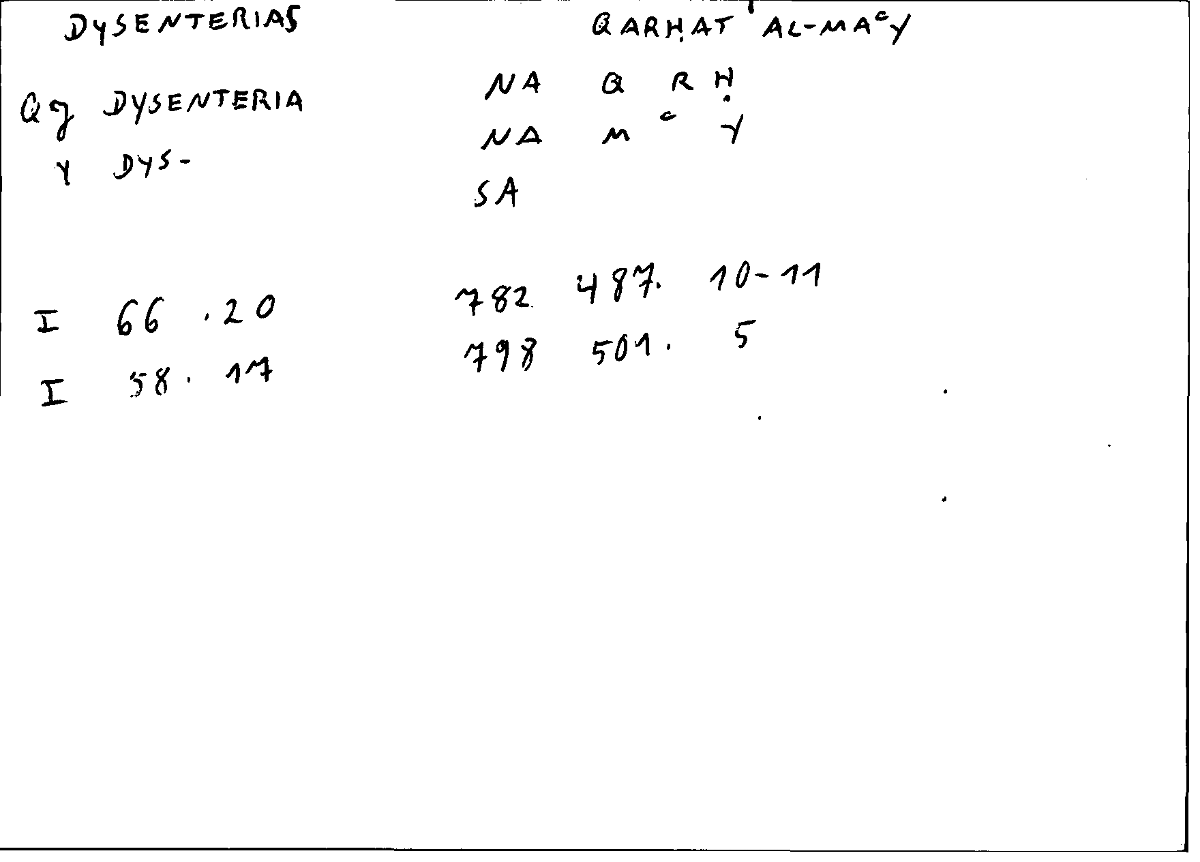 DYSENTERIAS QARḤAT AL-MAᶜY
Qg DYSENTERIA NA Q R Ḥ
Y DYS- NA M ᶜ Y
SA
I 66 .20 782 487. 10-11
I 58. 17 798 501. 5